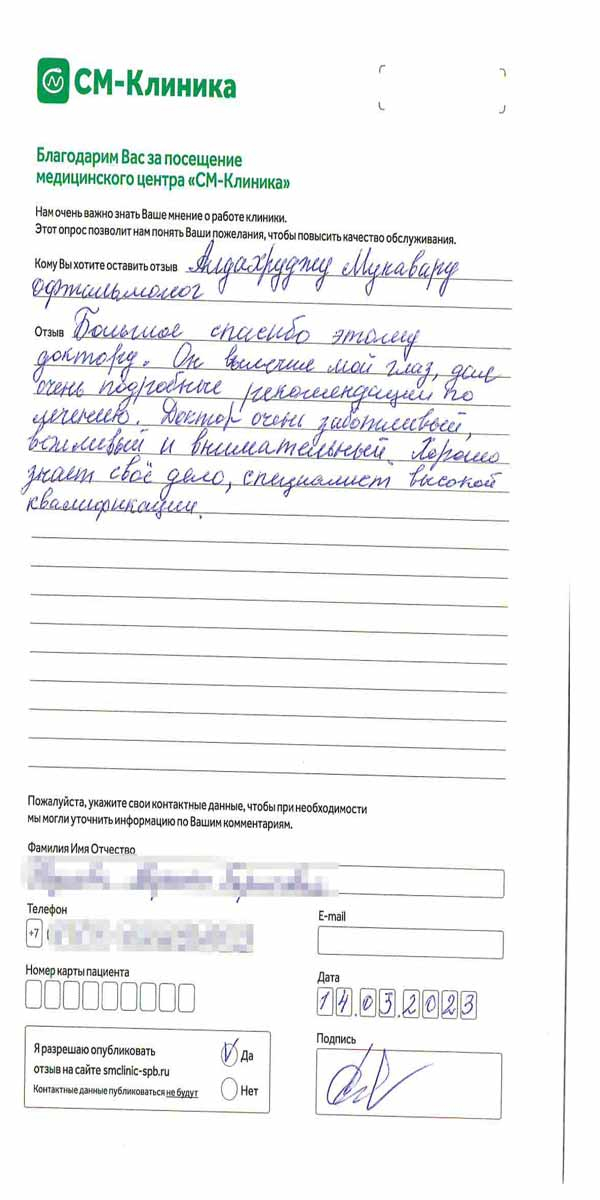 СМ-Клиника
Благодарим Вас за посещение
медицинского центра «СМ-Клиника»
Нам очень важно знать Ваше мнение о работе клиники.
Этот опрос позволит нам понять Ваши пожелания, чтобы повысить качество обслуживания.
Кому Вы хотите оставить отзыв Алдахруджу Мукавару
офтальмолог
Отзыв Большое спасибо этому
доктору. Он вылечил мой глаз, дал
очень подробные рекомендации по
лечению. Доктор очень заботливый,
вежливый и внимательный. Хорошо
знает своё дело, специалист высокой
квалификации.
Пожалуйста, укажите свои контактные данные, чтобы при необходимости
мы могли уточнить информацию по Вашим комментариям.
Фамилия Имя Отчество
Телефон
E-mail
+7 (
Номер карты пациента
Дата
14.05.2023
Я разрешаю опубликовать
отзыв на сайте smclinic-spb.ru
Контактные данные публиковаться не будут
Да
Нет
Подпись